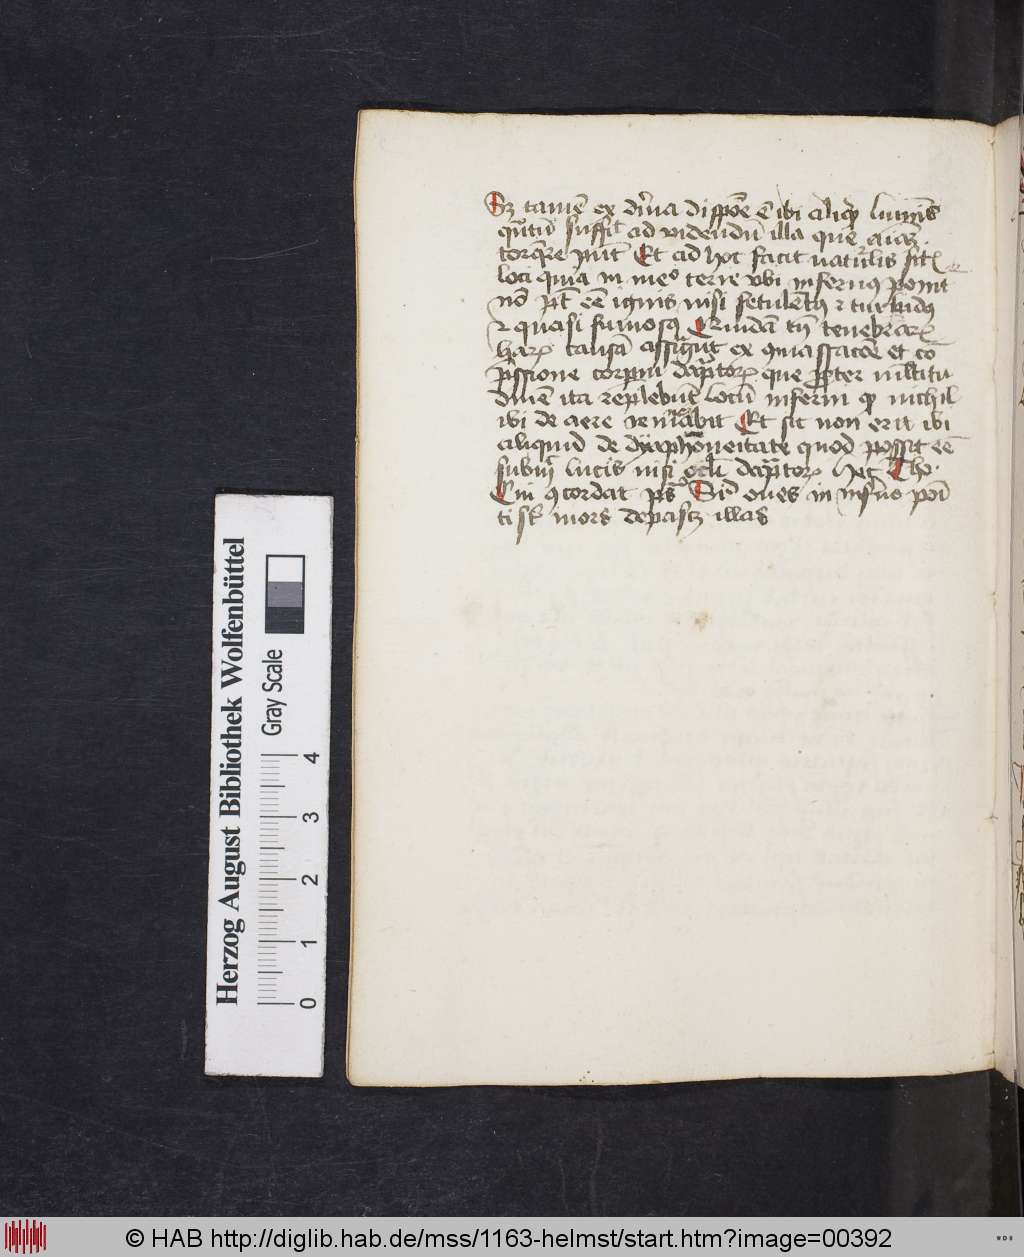 Sz tamē ex diuina disp̄oe ē ibi aliq̄d luminis
q̄ntū suffic̄ ad videndū illa que aīaz
torq̄re p̄nt Et ad hoc facit naturalis sit⁹
loci quia in medio terre vbi infernus ponit
nō p̄t eē ignis nisi fetulent⁹ ⁊ turbidus
⁊ quasi fumosus Quidā tn̄ tenebrarꝝ
harꝝ causā assignāt ex ꝯquassatōe et cō
pressione corporū dāpnatorꝝ que propter multitu
dinē ita replebūt locū inferni qd nichil
ibi de aere remanebit Et sic non erit ibi
aliquid de dyaphoneitate quod possit eē
lucis nisi ocli dāpnatorꝝ hec Tho.
Cui ꝯcordat ps̄ Sic oues in inferno posi
ti s̄t mors depascz illas
Herzog August Bibliothek Wolfenbüttel
Gray Scale
0 1 2 3 4
© HAB http://diglib.hab.de/mss/1163-helmst/start.htm?image=00392